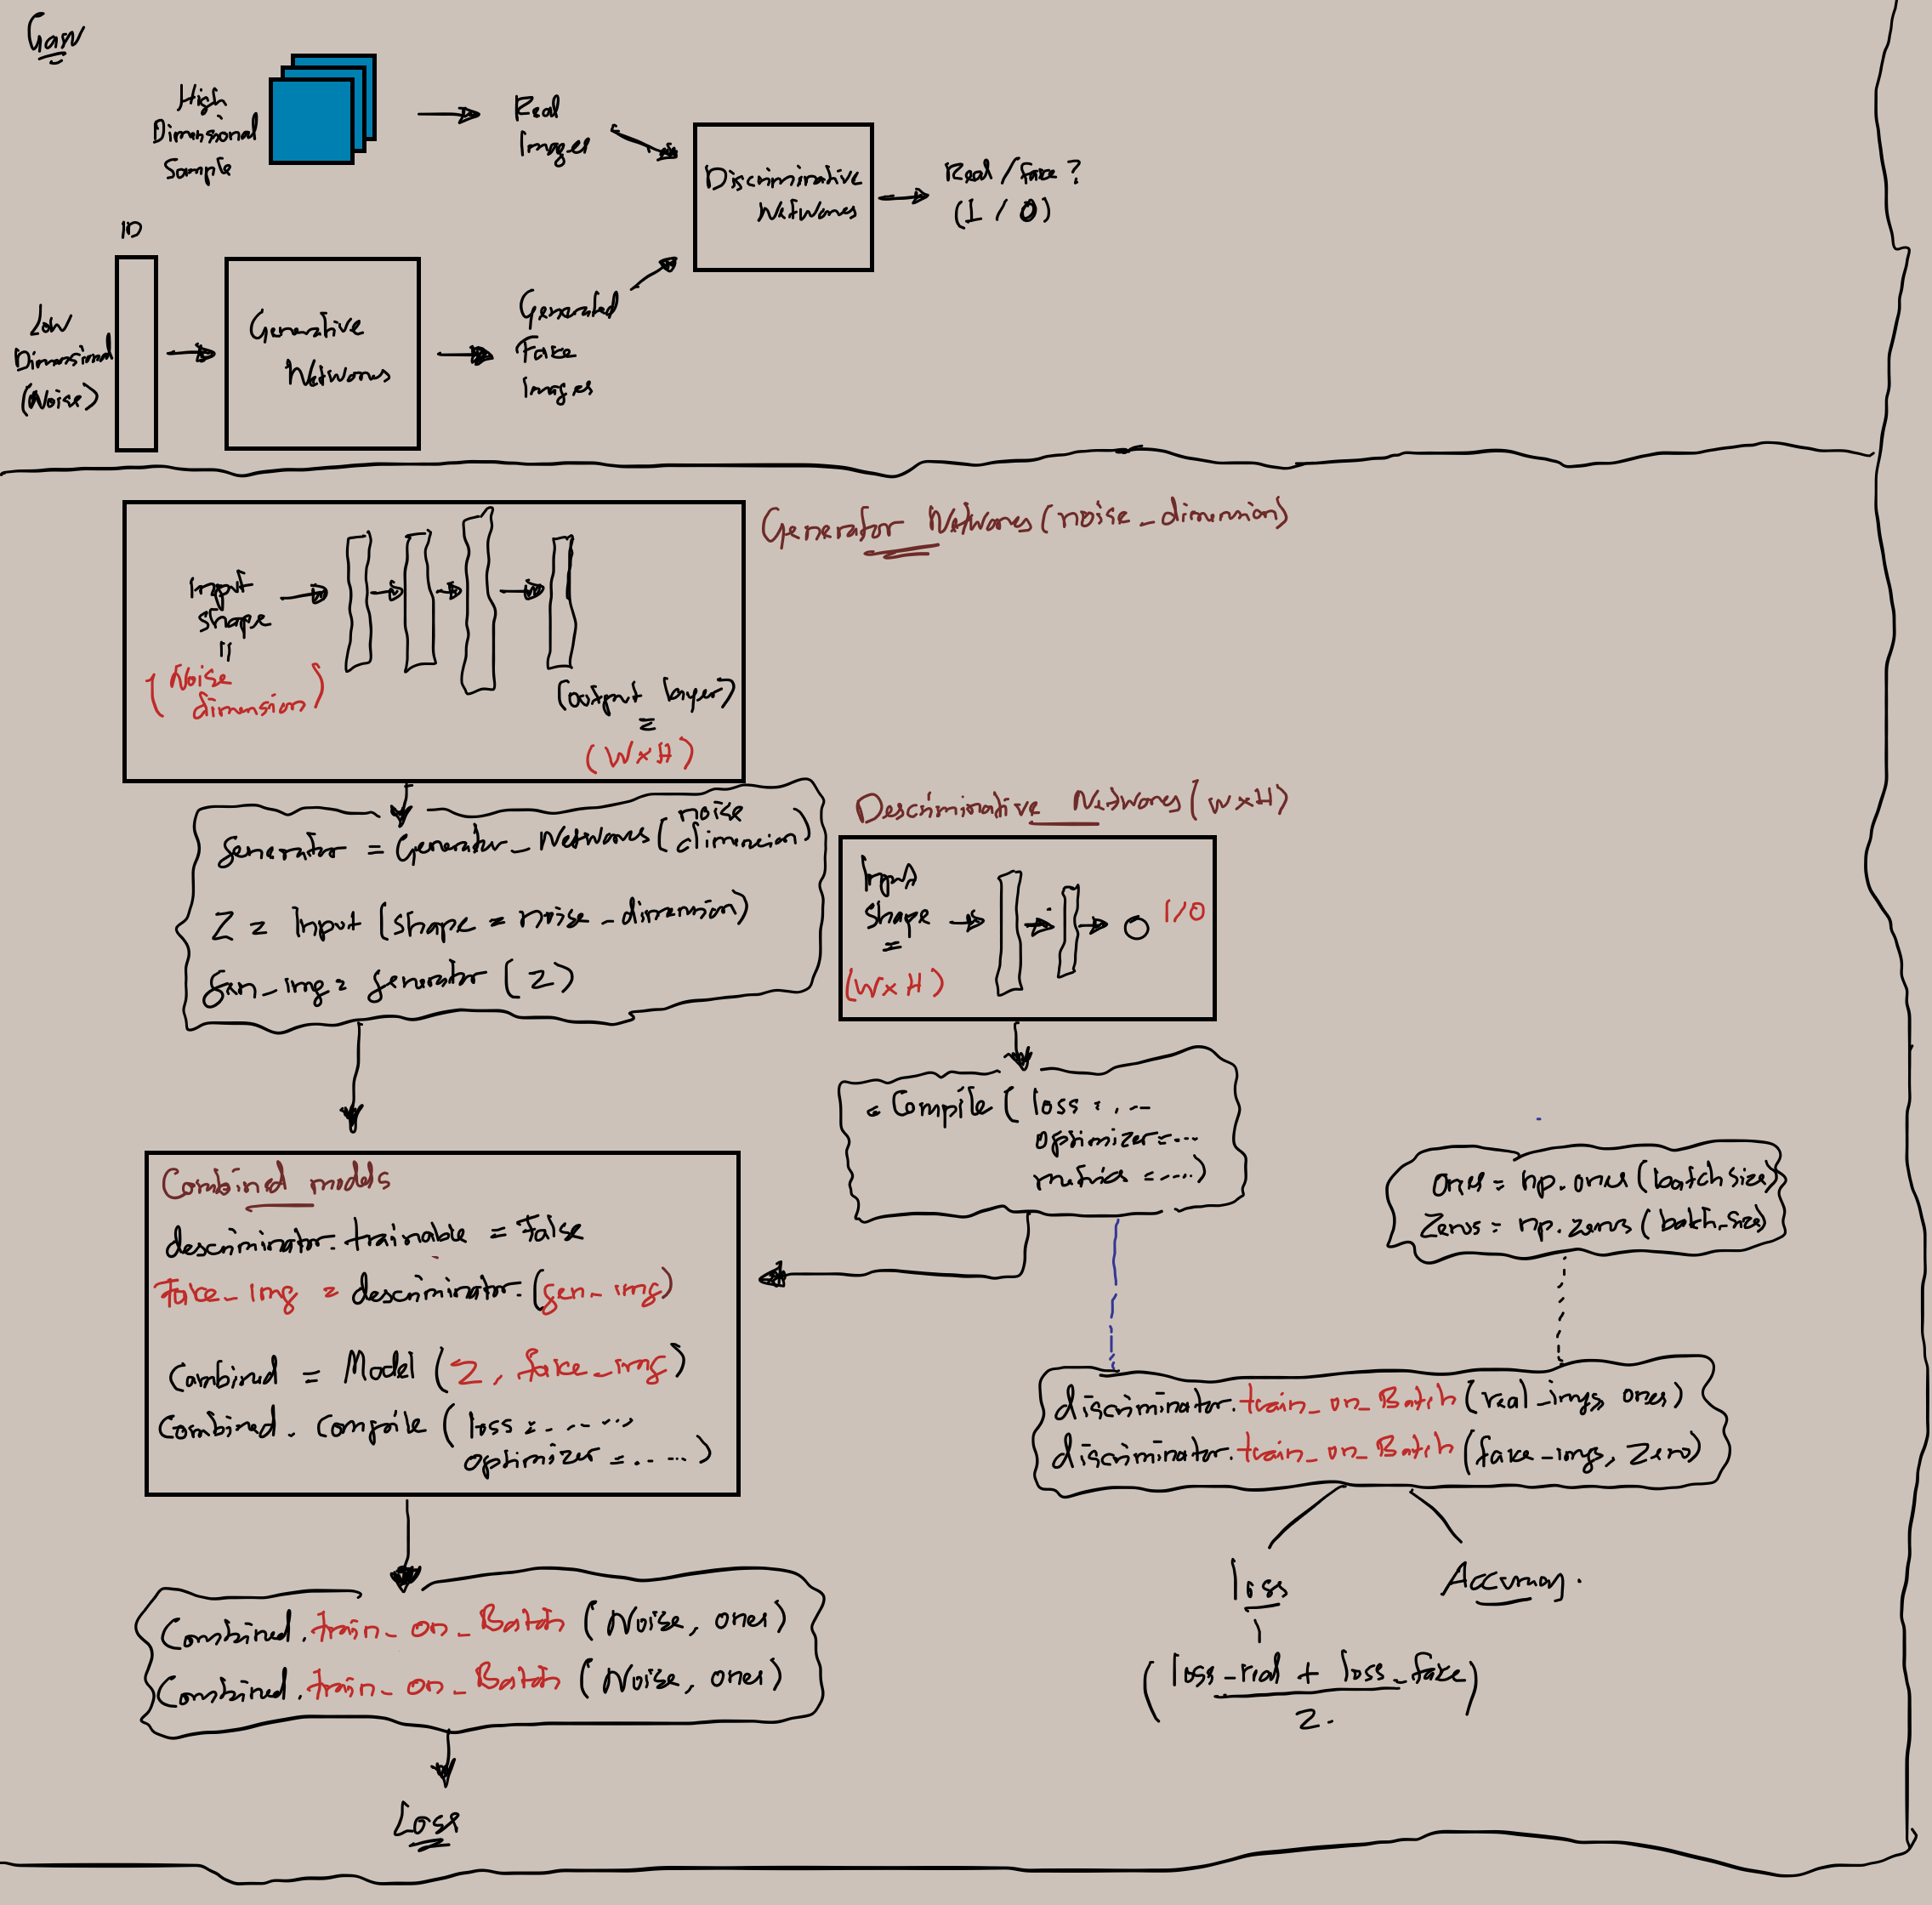 Gan
High
Dimensional
Sample
Real
Images
Discriminative
Networks
Real / fake ?
(1 / 0)
1D
Low
Dimensional
(Noise)
Generative
Networks
Generated
Fake
Images
Generator Networks (noise_dimension)
Input
shape
=
(Noise
dimension)
(output layer)
=
(W x H)
generator = Generator_Networks (noise
dimension)
Z = Input (shape = noise_dimension)
gen_img = generator (Z)
Descriminative Networks (W x H)
Input
shape
=
(W x H)
1/0
= Compile ( loss = ....
optimizer = ....
metrics = ....)
ones = np.ones (batch size)
Zeros = np.zeros (batch_size)
Combined models
descriminator.trainable = False
Fake_img = descriminator.(gen_img)
Combined = Model (Z, fake_img)
Combined. Compile ( loss = ......
optimizer = ......)
discriminator.train_on_Batch (real_imgs, ones)
discriminator.train_on_Batch (fake_imgs, Zero)
loss
Accuracy.
(loss_real + loss_fake)
2.
Combined.train_on_Batch (Noise, ones)
Combined.train_on_Batch (Noise, ones)
Loss